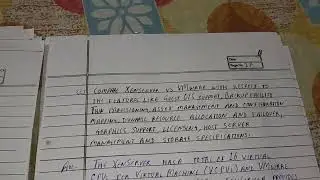 Date:
Page No: 27
(c) COMPARE XENSERVER VS VMWARE WITH RESPECT TO
THE FEATURES LIKE GUEST O/S SUPPORT, BACKUP FACILITY
THIN PROVISIONING, ASSET MANAGEMENT AND CONFIGURATION
MAPPING, DYNAMIC RESOURCE ALLOCATION AND FAILOVER,
GRAPHICS SUPPORT, LICENSING, HOST SERVER
MANAGEMENT AND STORAGE SPECIFICATIONS.
Ans: THE XENSERVER HAS A TOTAL OF 16 VIRTUAL
CPUS PER VIRTUAL MACHINE (VCPUS) AND VMWARE
PROVIDES